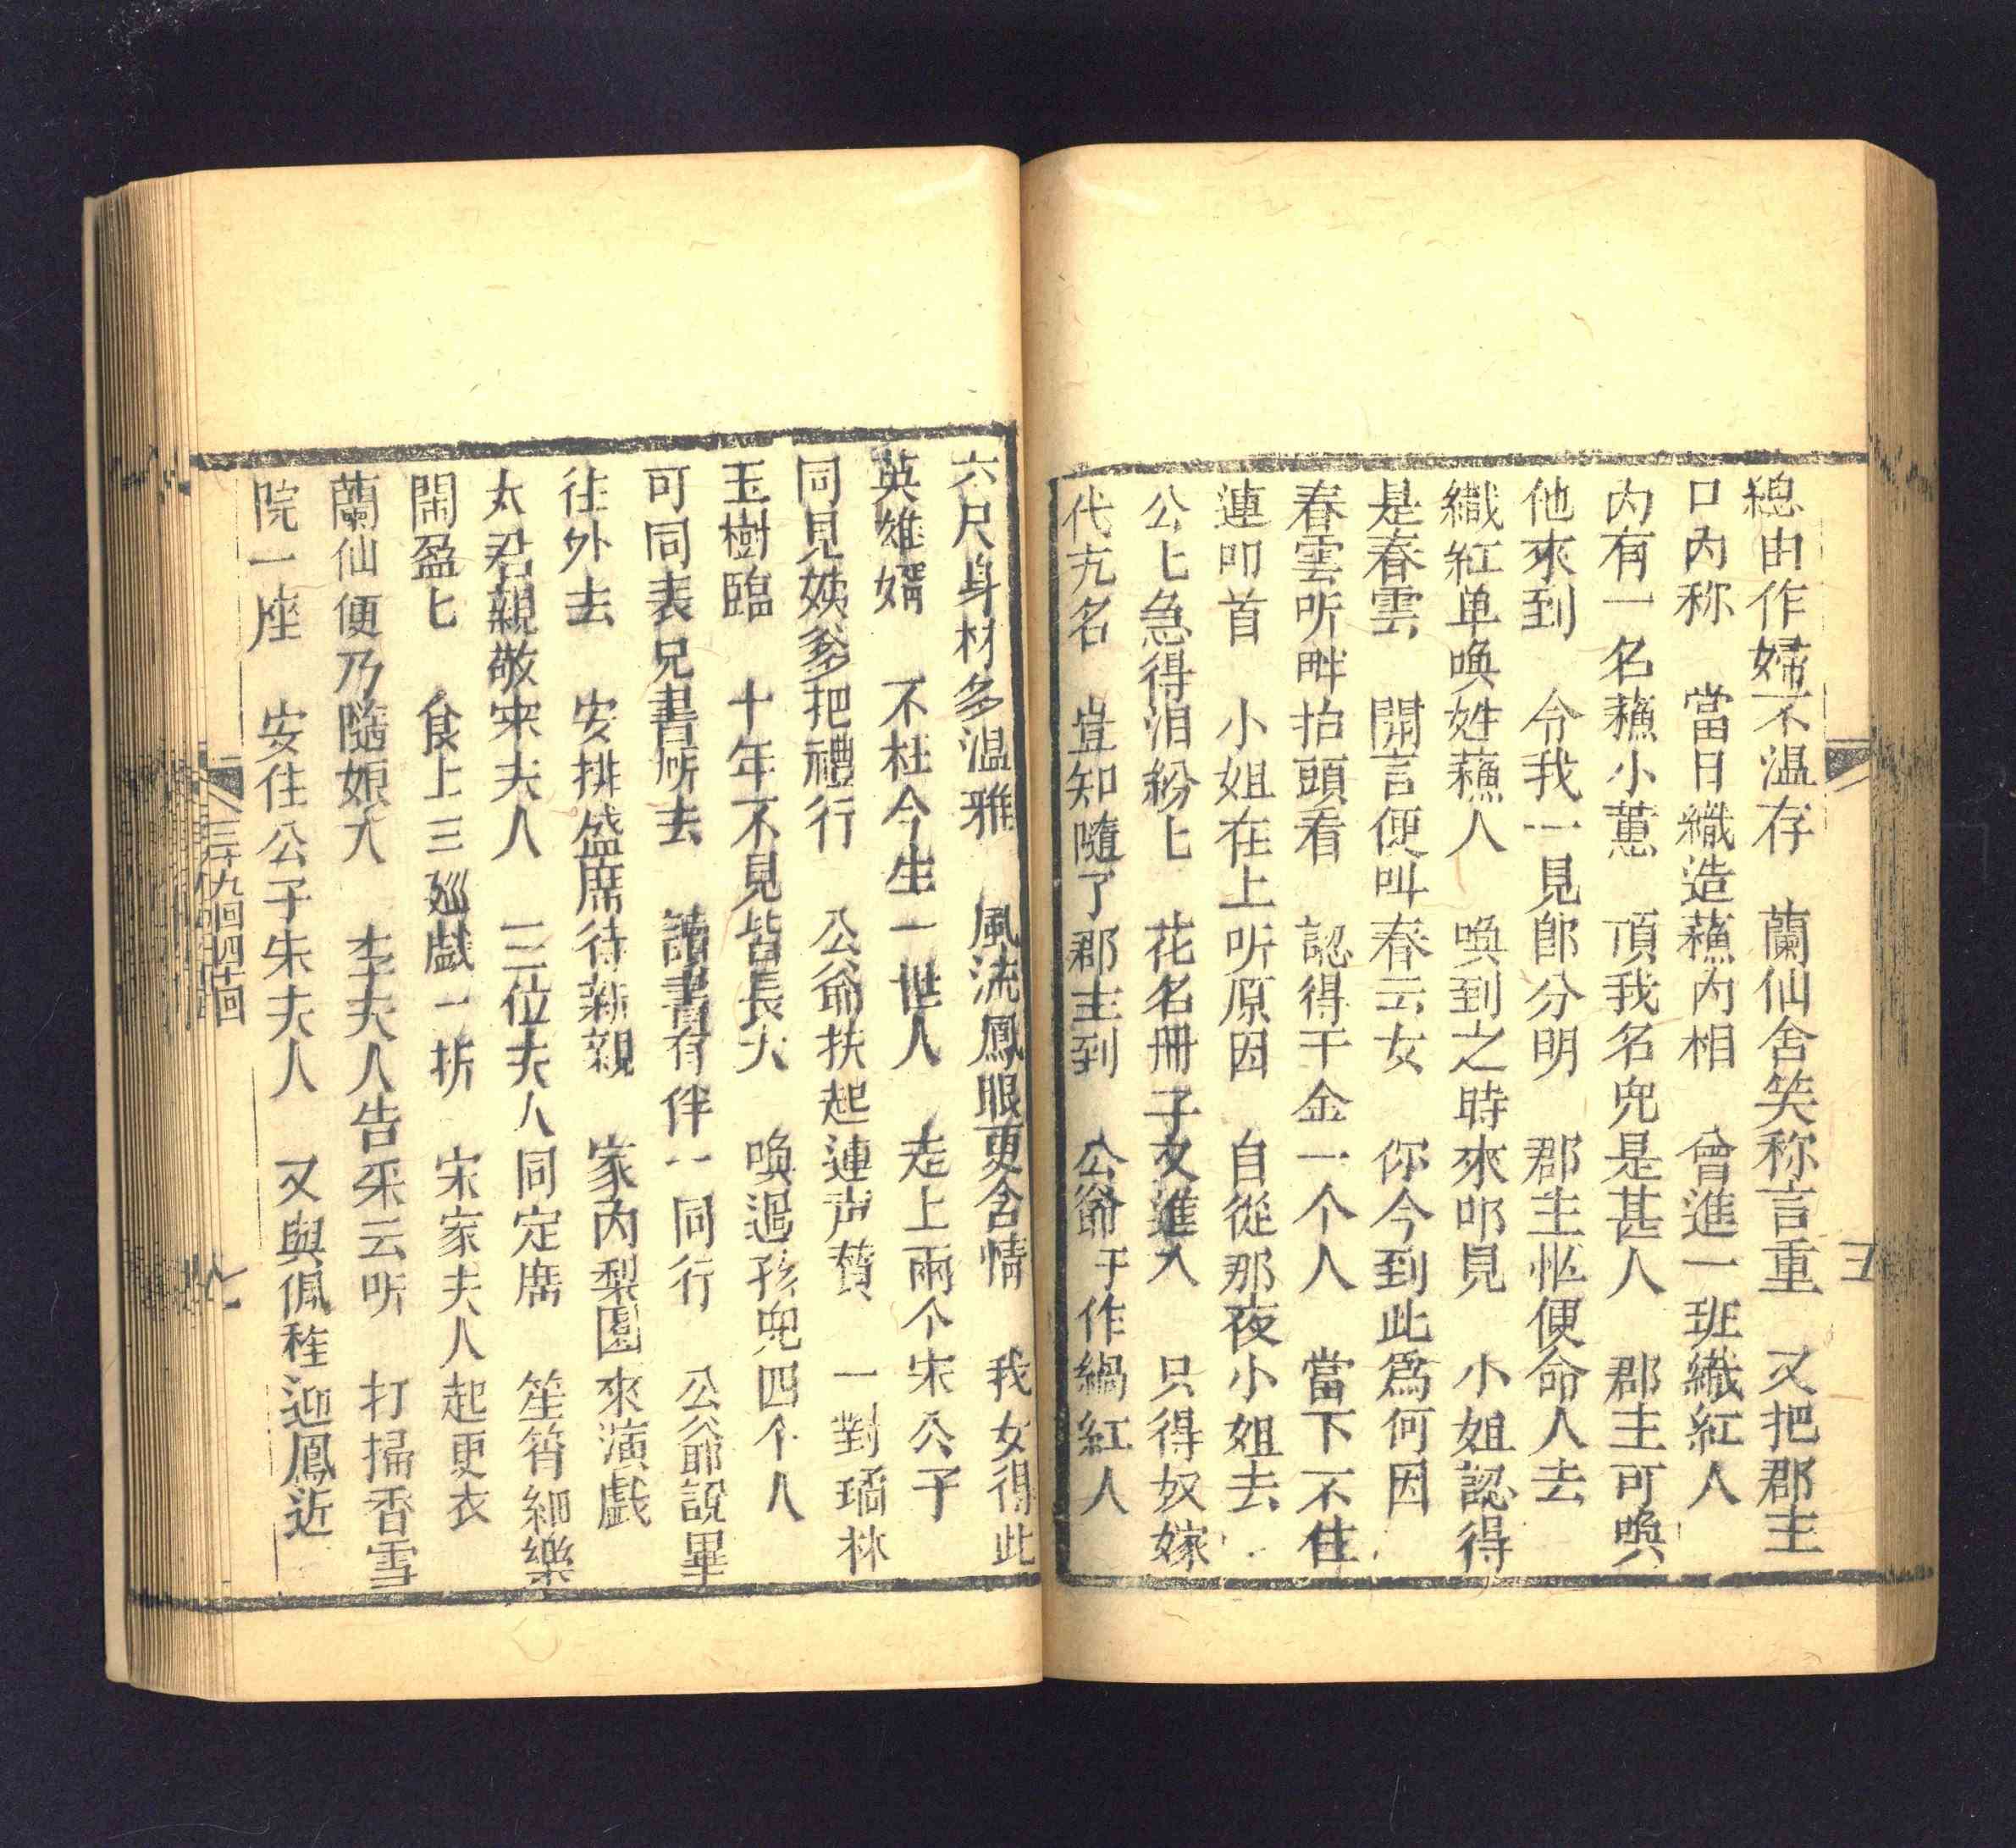 總由作婦不溫存　蘭仙含笑称言重　又把郡主
口内称　當日織造蘓内相　曾進一班織紅人
内有一名蘓小蕙　頂我名兜是甚人　郡主可喚
他來到　令我一見郎分明　郡主怄便命人去
織紅单喚姓蘓人　喚到之時來叩見　小姐認得
是春雲　開言便叫春云女　你今到此爲何因
春雲听畔抬頭看　認得千金一个人　當下不住
連叩首　小姐在上听原因　自從那夜小姐去
公匕急得泪紛匕　花名冊子文進入　只得奴嫁
代充名　豈知隨了郡主到　公爺于作緺紅人
五
六尺身材多温雅　風流鳳眼更含情　我女得此
英雄婿　不枉今生一世人　走上兩个宋公子
同見姨爹把禮行　公爺扶起連声贊　一對璚林
玉樹臨　十年不見皆長大　喚過孩兜四个人
可同表兄書所去　讀書有伴一同行　公爺說畢
往外去　安排盛席待新親　家内梨園來演戲
太君親敬宋夫人　三位夫人同定席　笙簫細樂
閙盈匕　食上三廵戲一折　宋家夫人起更衣
蘭仙便乃隨娘大　李夫人告采云听　打掃香雪
院一座　安住公子朱夫人　又與佩稚迎鳳近
三十九回四十回